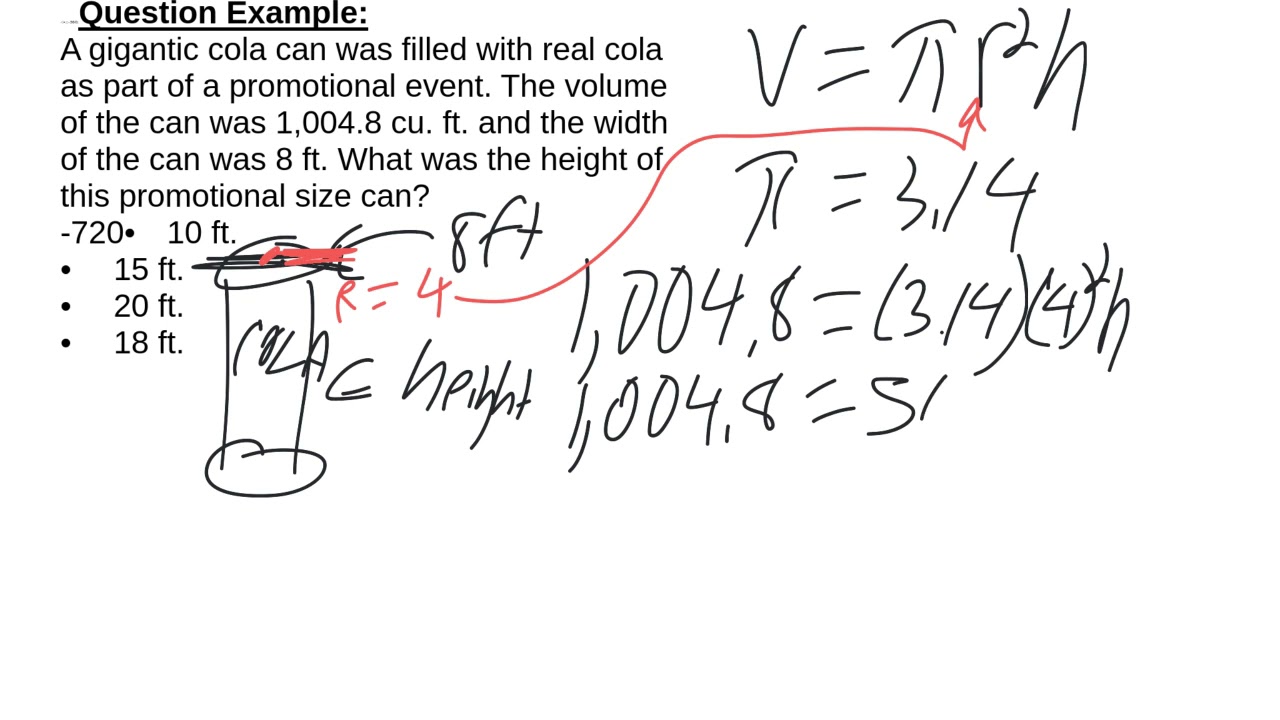 Question Example:
A gigantic cola can was filled with real cola
as part of a promotional event. The volume
of the can was 1,004.8 cu. ft. and the width
of the can was 8 ft. What was the height of
this promotional size can?
-720• 10 ft.
• 15 ft.
• 20 ft.
• 18 ft.
8ft
R = 4
cola
height
V = πr²h
π = 3.14
1,004.8 = (3.14)(4)²h
1,004.8 = 5